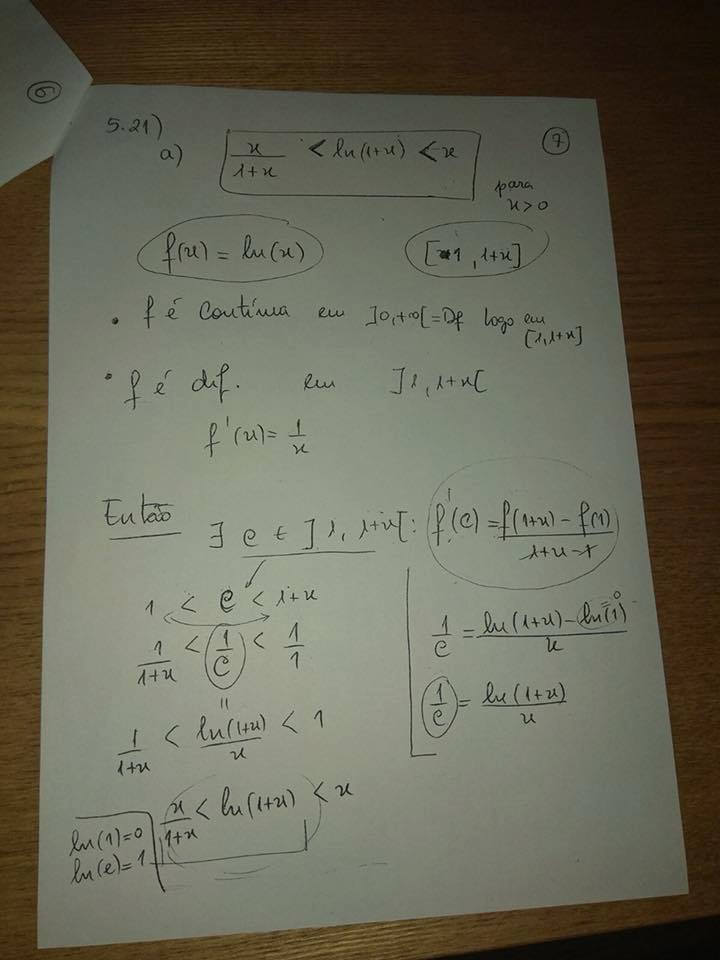 6
5.21)
7
a) x/(1+x) < ln(1+x) < x
para
x>0
f(x) = ln(x) [1, 1+x]
• f é contínua em ]0,+∞[=Df logo em
[1,1+x]
• f é dif. em ]1,1+x[
f'(x)= 1/x
Então ∃ c ∈ ]1, 1+x[: f'(c) = (f(1+x) - f(1))/(1+x-1)
1 < c < 1+x
1/(1+x) < 1/c < 1/1
=
1/(1+x) < ln(1+x)/x < 1
x/(1+x) < ln(1+x) < x
1/c = (ln(1+x) - ln(1))/x
=0
1/c = ln(1+x)/x
ln(1)=0
ln(e)=1